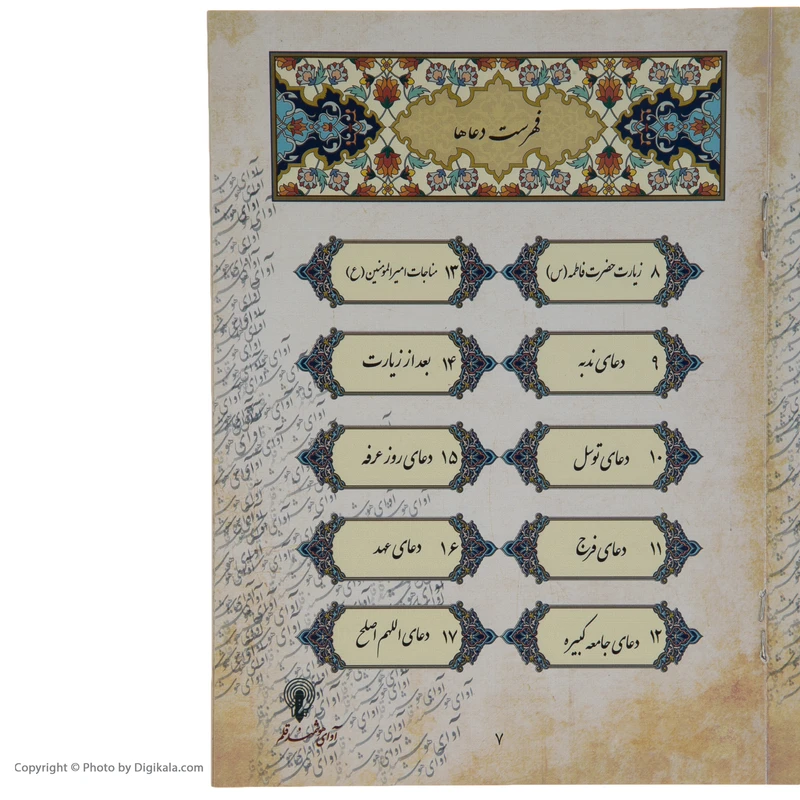 فهرست دعاها
۸ زیارت حضرت فاطمه (س)
۹ دعای ندبه
۱۰ دعای توسل
۱۱ دعای فرج
۱۲ دعای جامعه کبیره
۱۳ مناجات امیرالمؤمنین (ع)
۱۴ بعد از زیارت
۱۵ دعای روز عرفه
۱۶ دعای عهد
۱۷ دعای اللهم اصلح
۷
Copyright © Photo by Digikala.com